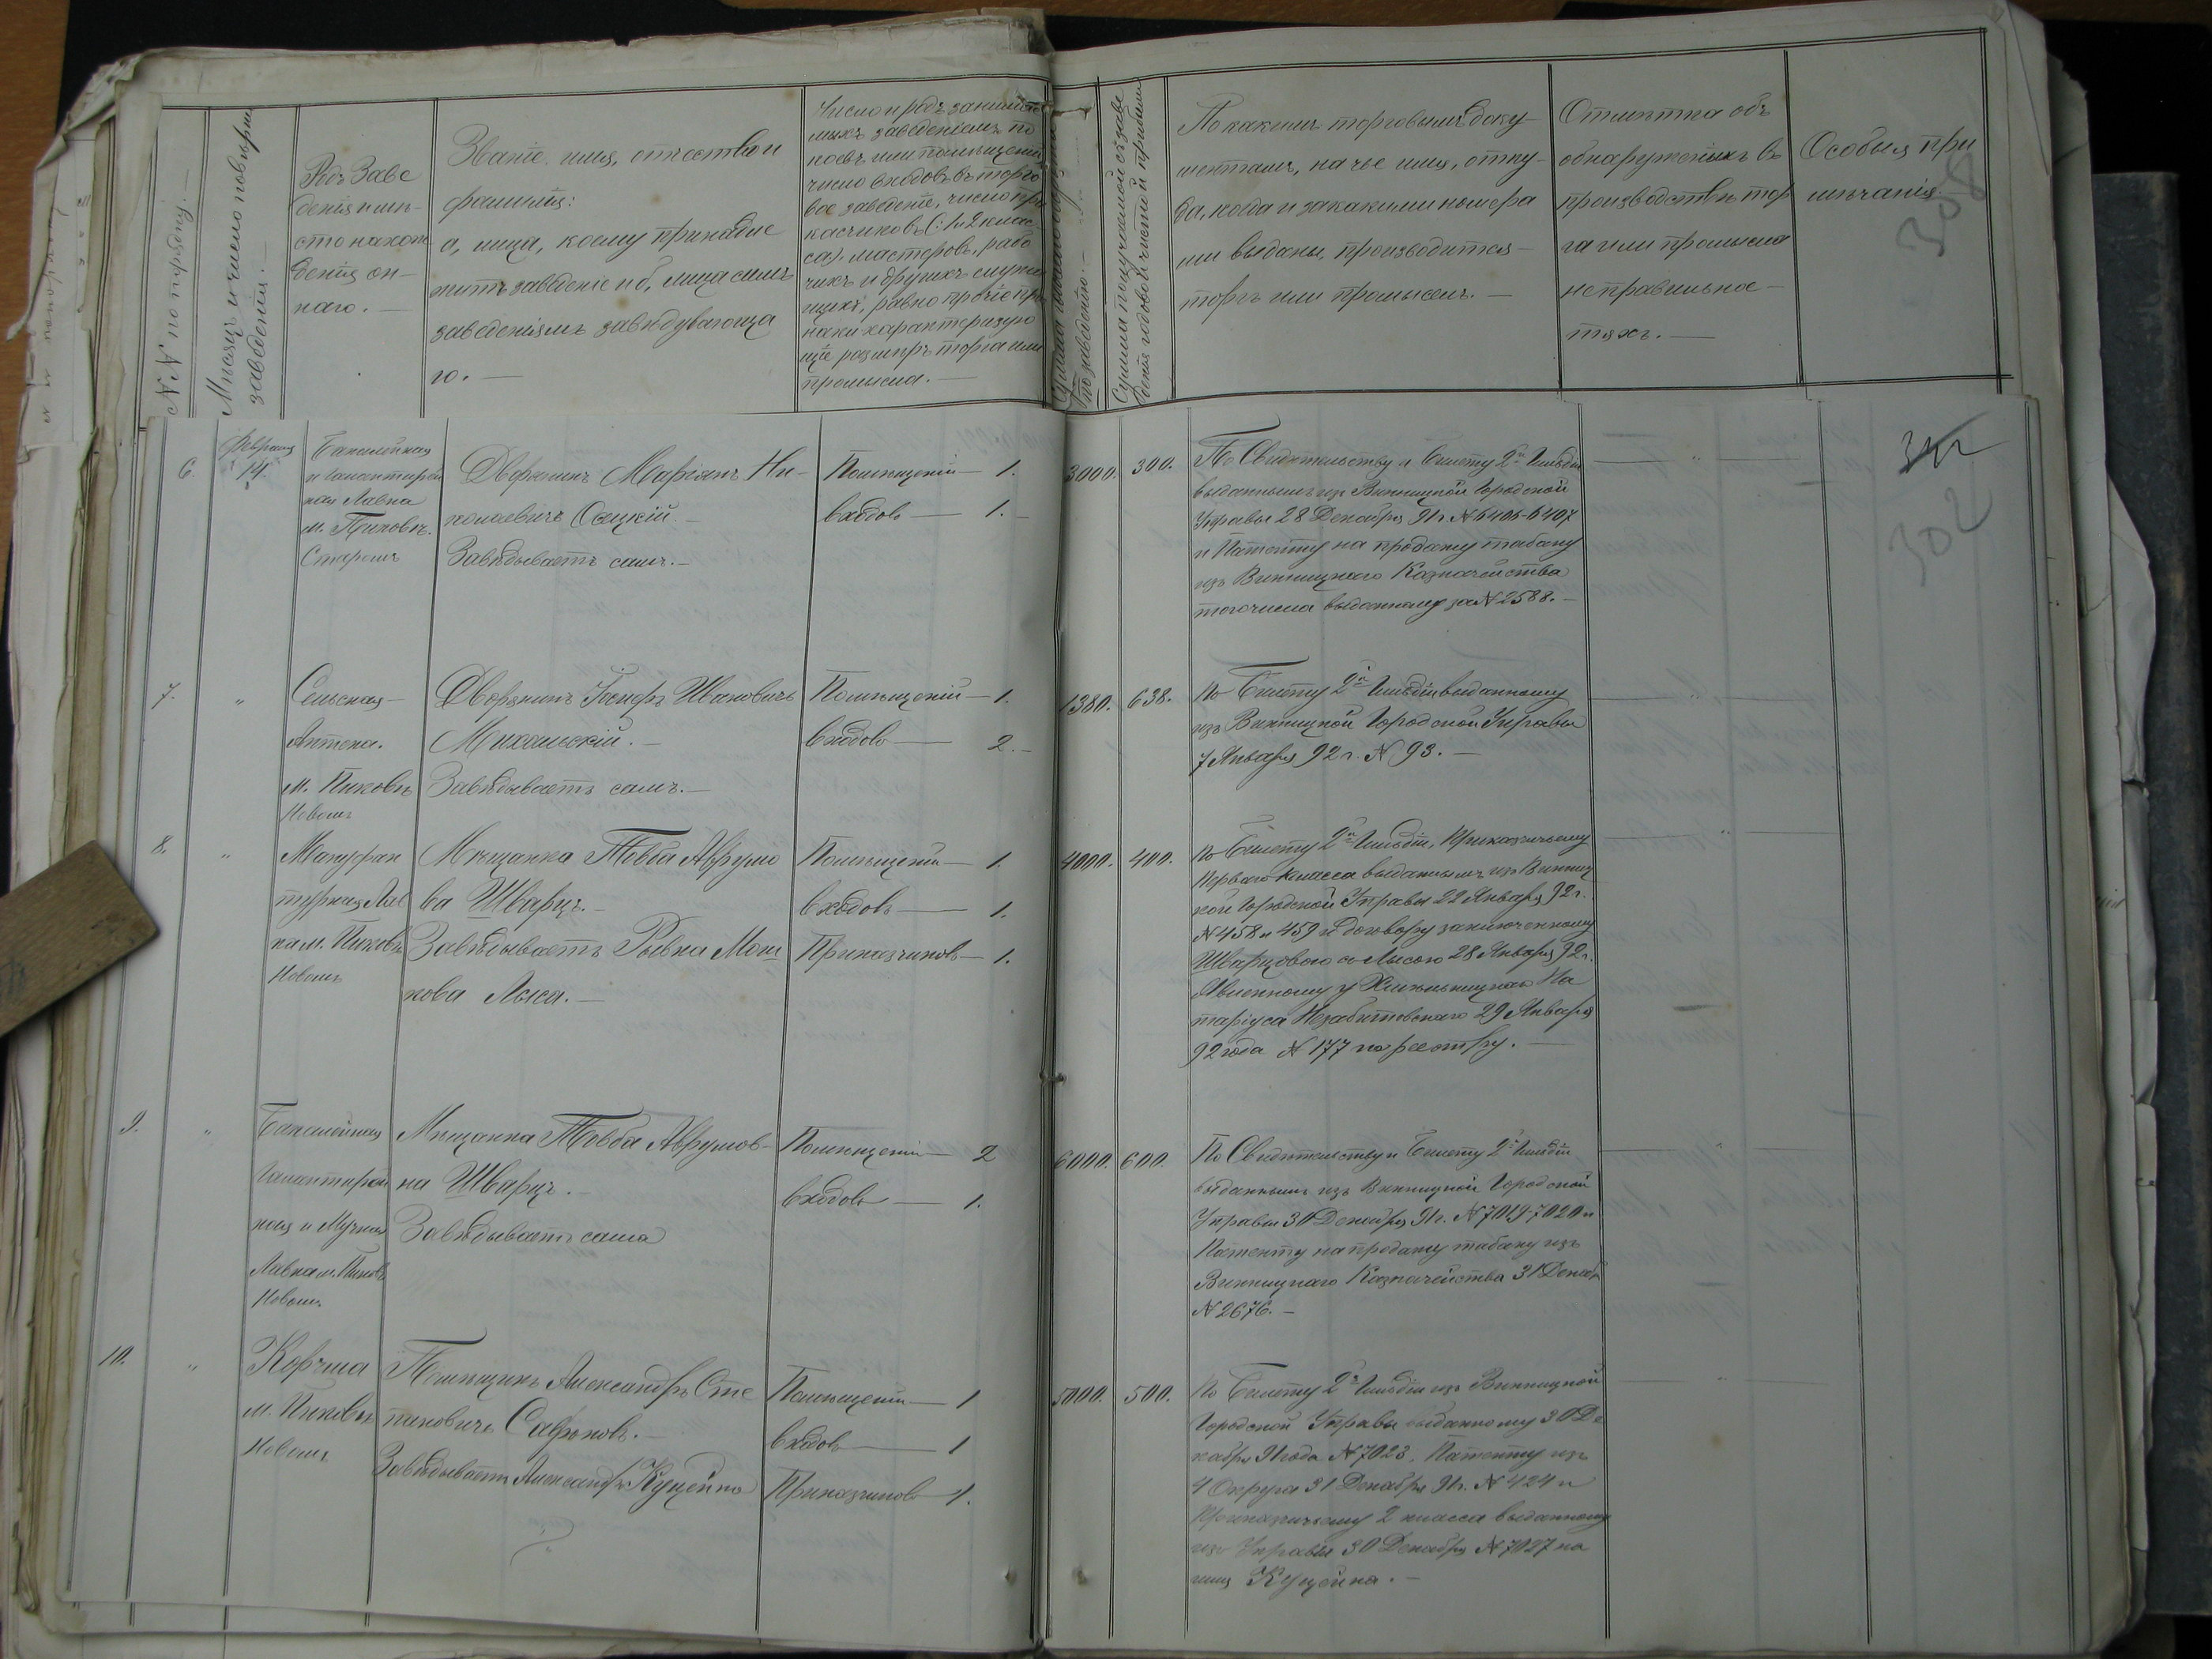 №№ по порядку. —
Месяцъ и число повѣрки
заведенія. —
Родъ Заве
денія и мѣ-
сто нахож
денія он-
наго. —
Званіе, имя, отчество и
фамилія:
а, лица, коему принадле
житъ заведеніе и б, лица симъ
заведеніямъ завѣдующа
го. —
Число и родъ занимае
мыхъ заведеніемъ по
коевъ или помѣщеній,
число входовъ въ торго
вое заведеніе, число при
касчиковъ (: 1 и 2 клас
са) мастеровъ, рабо
чихъ и другихъ служа
щихъ, равно прочіе приз
наки характеризую
щіе размѣръ торга или
промысла. —
по заведенію. —
Сумма получаемой съ заве
денія годовой чистой прибыли
По какимъ торговымъ доку-
ментамъ, на чье имя, отку-
да, когда и за какими номера
ми выданы, производится —
торгъ или промыселъ. —
Отмѣтка объ
обнаруженныхъ въ
производствѣ тор
га или промысла
неправильнос —
тяхъ. —
Особыя при
мѣчанія. —
308
302
6.
Февраля
14.
Бакалейная
и галантирей
ная Лавка
м. Пиковъ.
Старомъ
Дворянинъ Маріянъ Ни-
колаевичъ Осецкій. —
Завѣдываетъ самъ. —
Помѣщеній — 1.
Входовъ — 1. —
3000. 300.
По Свидѣтельству и билету 2й Гильдіи
выданнымъ изъ Винницкой Городской
Управы 28 Декабря 91 г. № 6406-6407
и Патенту на продажу табаку
изъ Винницкаго Казначейства
того числа выданному за № 2588. —
7.
"
Сельская —
Аптека.
м. Пиковѣ
Новомъ
Дворянинъ Іосифъ Ивановичъ
Михальскій. —
Завѣдываетъ самъ. —
Помѣщеній — 1.
Входовъ — 2. —
1380. 638.
По Билету 2й Гильдіи выданному
изъ Винницкой Городской Управы
7 Января 92 г. № 93. —
8.
"
Мануфак
турная Лав
ка м. Пиковѣ
Новомъ
Мѣщанка Товба Аврумо
ва Шварцъ. —
Завѣдываетъ Рывка Мош
кова Лыса. —
Помѣщеній — 1.
Входовъ — 1.
Приказчиковъ — 1.
4000. 400.
По Билету 2й Гильдіи, Приказчичьему
Перваго класса выданнымъ изъ Винниц
кой Городской Управы 22 Января 92 г.
№ 458 и 459 и договору заключенному
Шварцовою съ Лысою 28 Января 92 г.
Явленному у Хмѣльницкаго На
таріуса Незабитовскаго 29 Января
92 года № 177 по реестру. —
9.
"
Бакалейная
Галантирей
ная и Мучная
Лавка м. Пиковѣ
Новомъ
Мѣщанка Товба Аврумов-
на Шварцъ. —
Завѣдываетъ сама
Помѣщеній — 2
Входовъ — 1.
6000. 600.
По Свидѣтельству и Билету 2й Гильдіи
выданнымъ изъ Винницкой Городской
Управы 30 Декабря 91 г. № 7019-7020 и
Патенту на продажу табаку изъ
Винницкаго Казначейства 31 Декаб
№ 2676. —
10.
"
Корчма
м. Пиковѣ
Новомъ
Помѣщикъ Александръ Сте
пановичъ Сафоновъ. —
Завѣдываетъ Александръ Куцейко
Помѣщеній — 1
Входовъ — 1
Приказчиковъ — 1.
5000. 500.
По Билету 2й Гильдіи изъ Винницкой
Городской Управы выданному 30 Де
кабря 91 года № 7023, Патенту изъ
4 Округа 31 Декабря 91 г. № 424 и
Приказчичьему 2 класса выданному
изъ Управы 30 Декабря № 7027 на
имя Куцейка. —